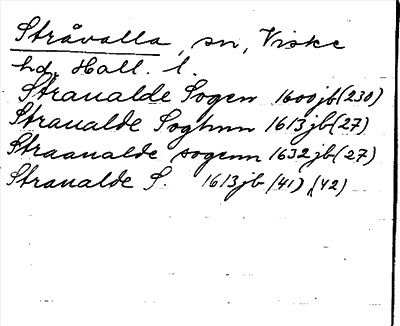 Stråvalla, sn, Viske
hd, Hall. l.
Straualde Sogen 1600jb(230)
Straualde Soghnn 1613jb(27)
Straaualde sogenn 1632jb(27)
Straualde S. 1613jb (41), (42)